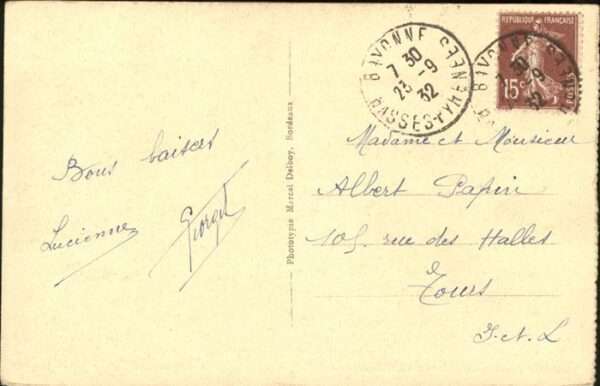 BAYONNE
7 30
23-9
32
BASSES-PYRÉNÉES
RÉPUBLIQUE FRANÇAISE
15c
POSTES
Bons baisers
Lucienne Georget
Phototypie Marcel Delboy, Bordeaux
Madame et Monsieur
Albert Papin
105. rue des Halles
Tours
I. et. L